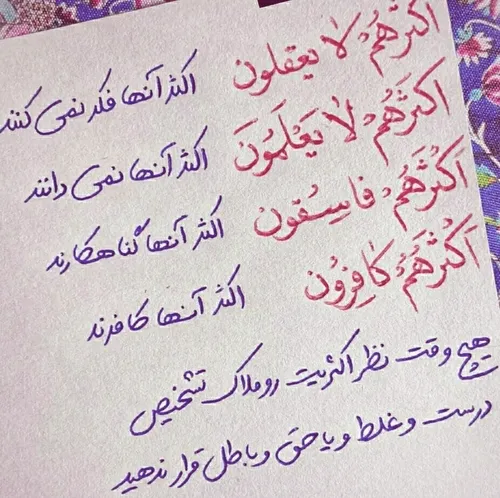 اکثرهُمْ لا یعقلون اکثر آنها فکر نمی کنند
اکثَرَهُمْ لا یَعْلَمُونَ اکثر آنها نمی دانند
اَکْثَرَهُمْ فاسِقون اکثر آنها گناهکارند
اَکْثَرَهُمْ کافِرُون اکثر آنها کافرند
هیچ وقت نظر اکثریت رو ملاک تشخیص
درست و غلط و یا حق و باطل قرار ندهید